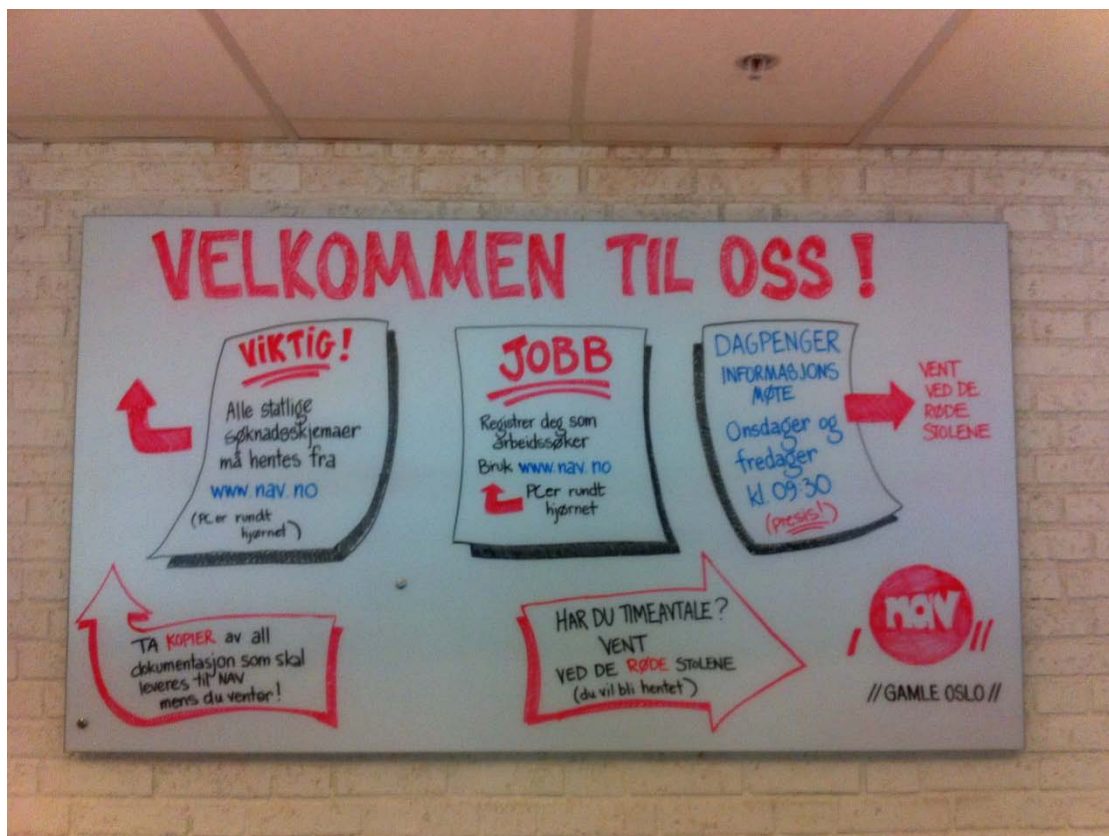 VELKOMMEN TIL OSS!
VIKTIG!
Alle statlige
søknadsskjemaer
må hentes fra
www.nav.no
(PCer rundt
hjørnet)
JOBB
Registrer deg som
arbeidssøker
Bruk www.nav.no
PCer rundt
hjørnet
DAGPENGER
INFORMASJONS
MØTE
Onsdager og
fredager
kl. 09:30
(presis!)
VENT
VED DE
RØDE
STOLENE
TA KOPIER av all
dokumentasjon som skal
leveres til NAV
mens du venter!
HAR DU TIMEAVTALE?
VENT
VED DE RØDE STOLENE
(du vil bli hentet)
nav
// GAMLE OSLO //